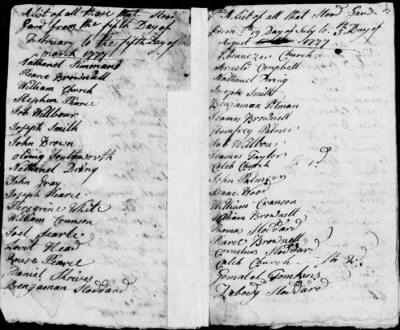 A list of all them that Stood
Gard from the fifth Day of
February to the fifth Day of
march 1777
Nathanel Simmons
Pearce Brownell
William Church
Stephen Pearce
Job Willbour
Joseph Smith
John Brown
Southworth
Nathanel Dring
John Gray
Joseph Pearce
Peregrine White
William Cranson
Joel Searls
Lovit Head
Rouse Pearce
Daniel
Benjaman Stoddard
A list of all that Stood Gard
from the Day of July to th 5 Day of
August 1777
Ebenezer Church
Arnold Campbell
Nathanel Dring
Joseph Smith
Benjaman Pitman
James Brownell
Humfrey Palmer
Job Willbour
James Taylor
Caleb Church
John Palmer
Isaac Wood
William Cranson
William Brownell
Thomas Stoddard
Pearce Brownell
Cornelius Stoddard
Caleb Church
Gamalel Tomkins
Zebedy Stoddard